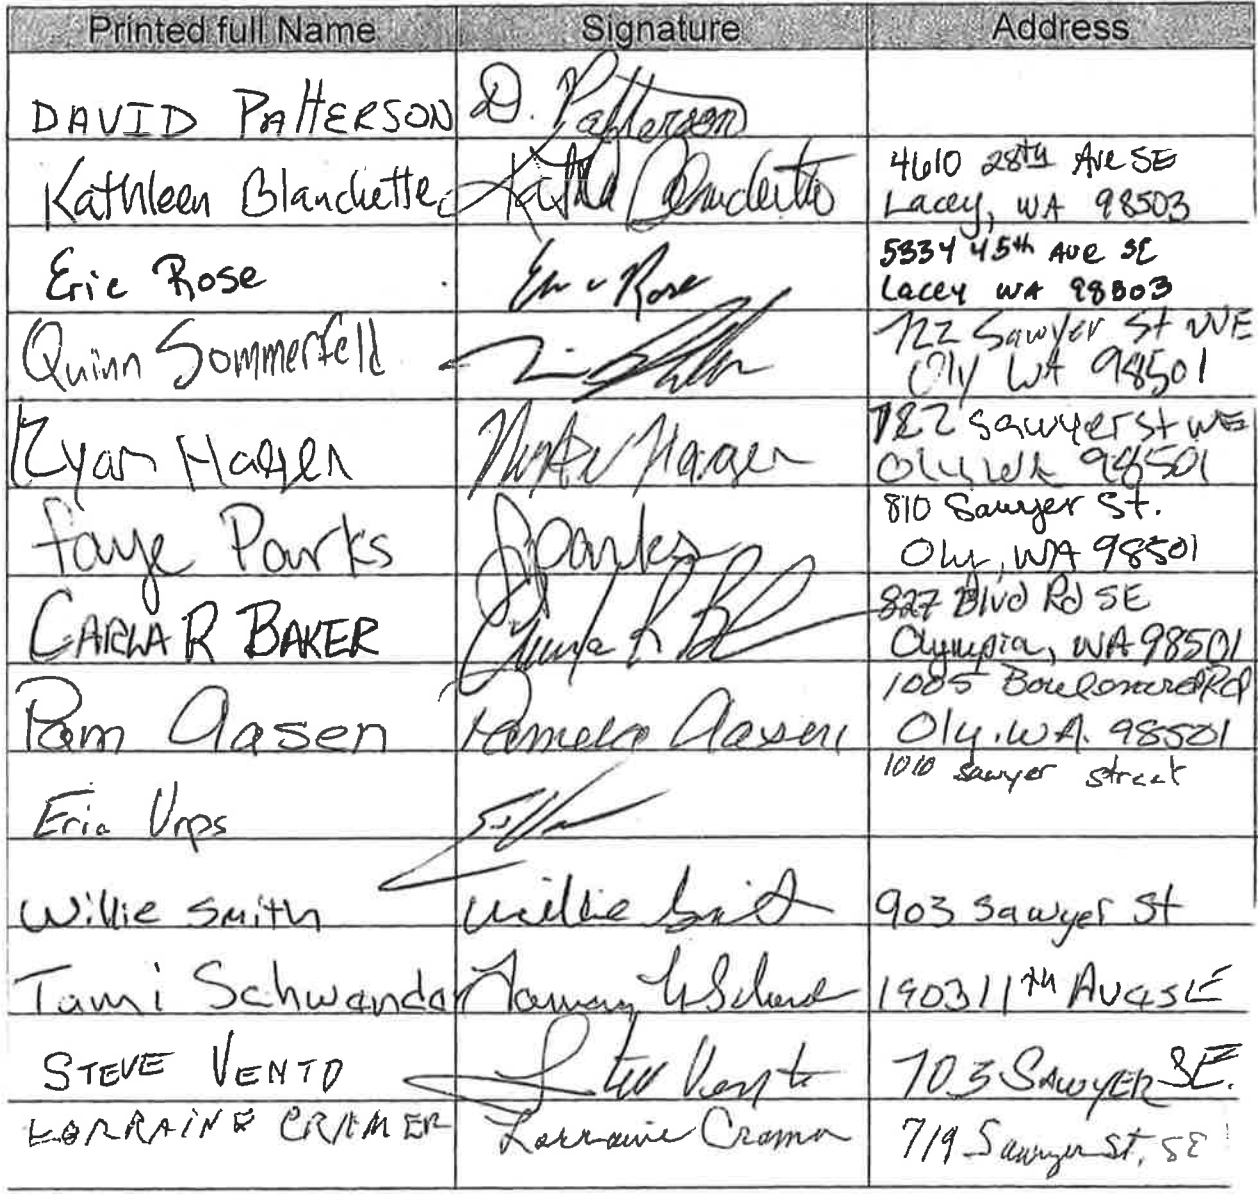 Printed full Name Signature Address
DAVID PATTERSON D. Patterson
Kathleen Blanchette 4610 28th Ave SE
Lacey, WA 98503
Eric Rose Eric Rose 5334 45th Ave SE
Lacey WA 98503
Quinn Sommerfeld 722 Sawyer St
Oly WA 98501
Ryan Hagen Hagen 722 Sawyer St
Oly WA 98501
Faye Parks Parks 810 Sawyer St.
Oly, WA 98501
CARLA R BAKER 827 Blvd Rd SE
Olympia, WA 98501
Pam Aasen Pamela Aasen 1005 Boulevard Rd
Oly. WA. 98501
Eric 1010 Sawyer street
Willie Smith Willie Smith 903 Sawyer St
Tami Schwandar 1903 11TH
STEVE VENTO Steve Vento 703 SAWYER SE.
LORRAINE CRAMER Lorraine Cramer 719 Sawyer St. SE